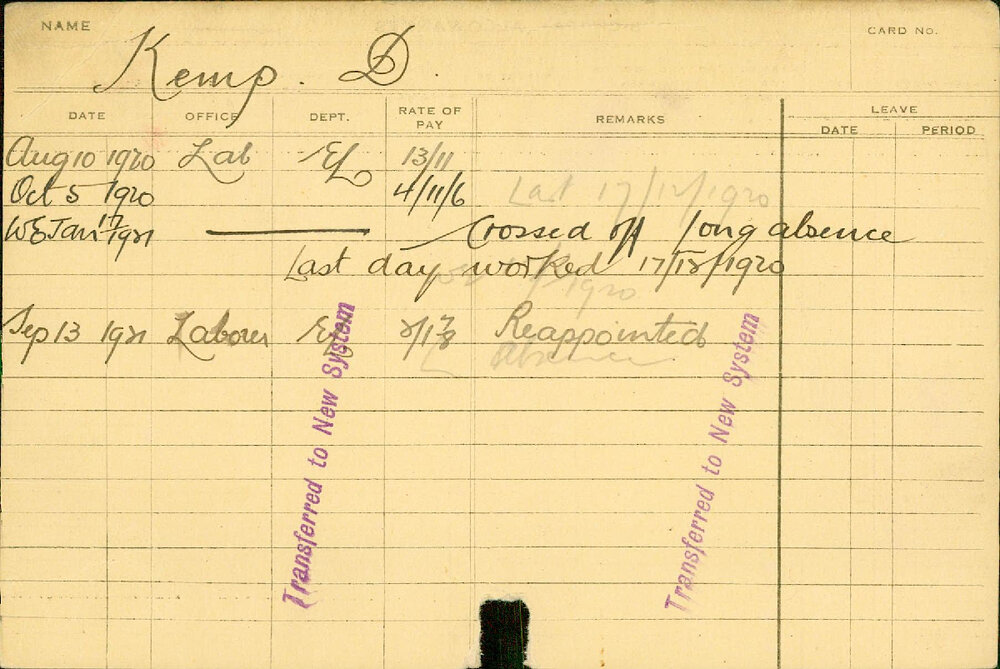 NAME Kemp. D. CARD NO.
DATE OFFICE DEPT. RATE OF PAY REMARKS LEAVE
DATE PERIOD
Aug 10 1920 Lab EL 13/11
Oct 5 1920 4/11/6 Last 17/12/1920
WE Jan 17 1921 Crossed off long absence
Last day worked 17/12/1920
1920
Sep 13 1921 Laborer EL Reappointed
absence
Transferred to New System
Transferred to New System